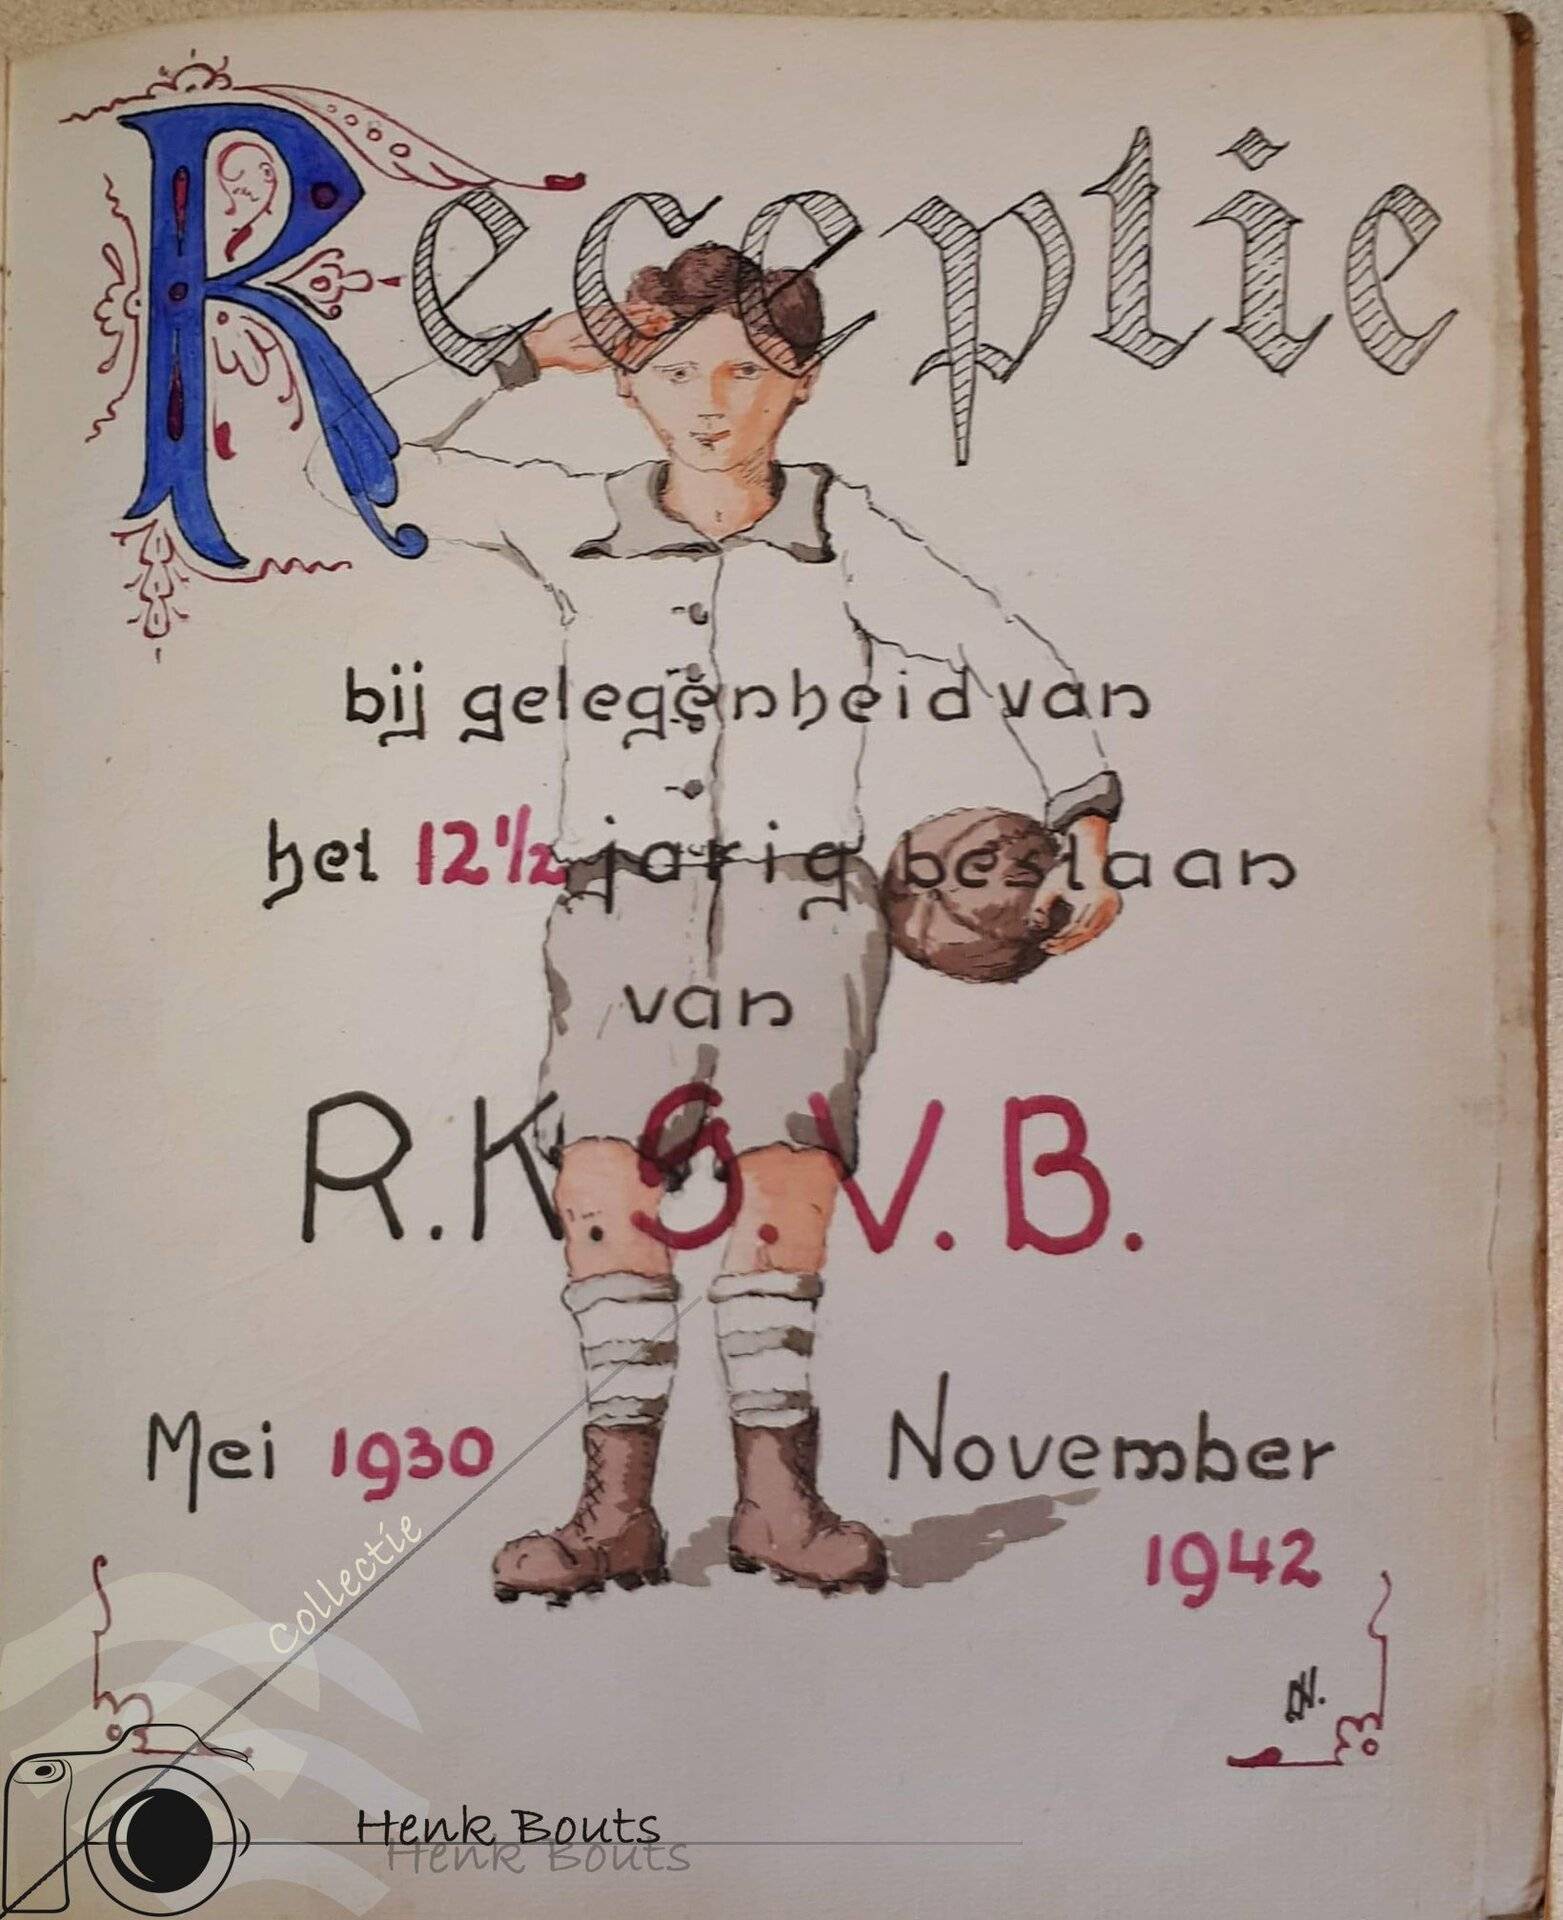 Receptie
bij gelegenheid van
het 12 1/2 jarig bestaan
van
R.K.S.V.B.
Mei 1930
November
1942
Collectie
Henk Bouts
Henk Bouts